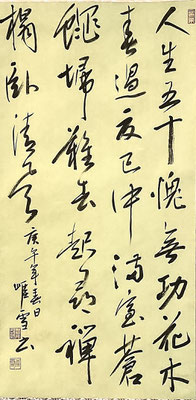 人生五十愧無功花木
春過夏已中滿室蒼
蠅掃難去起尋禪
榻臥清風
庚午年春日
唯雪書